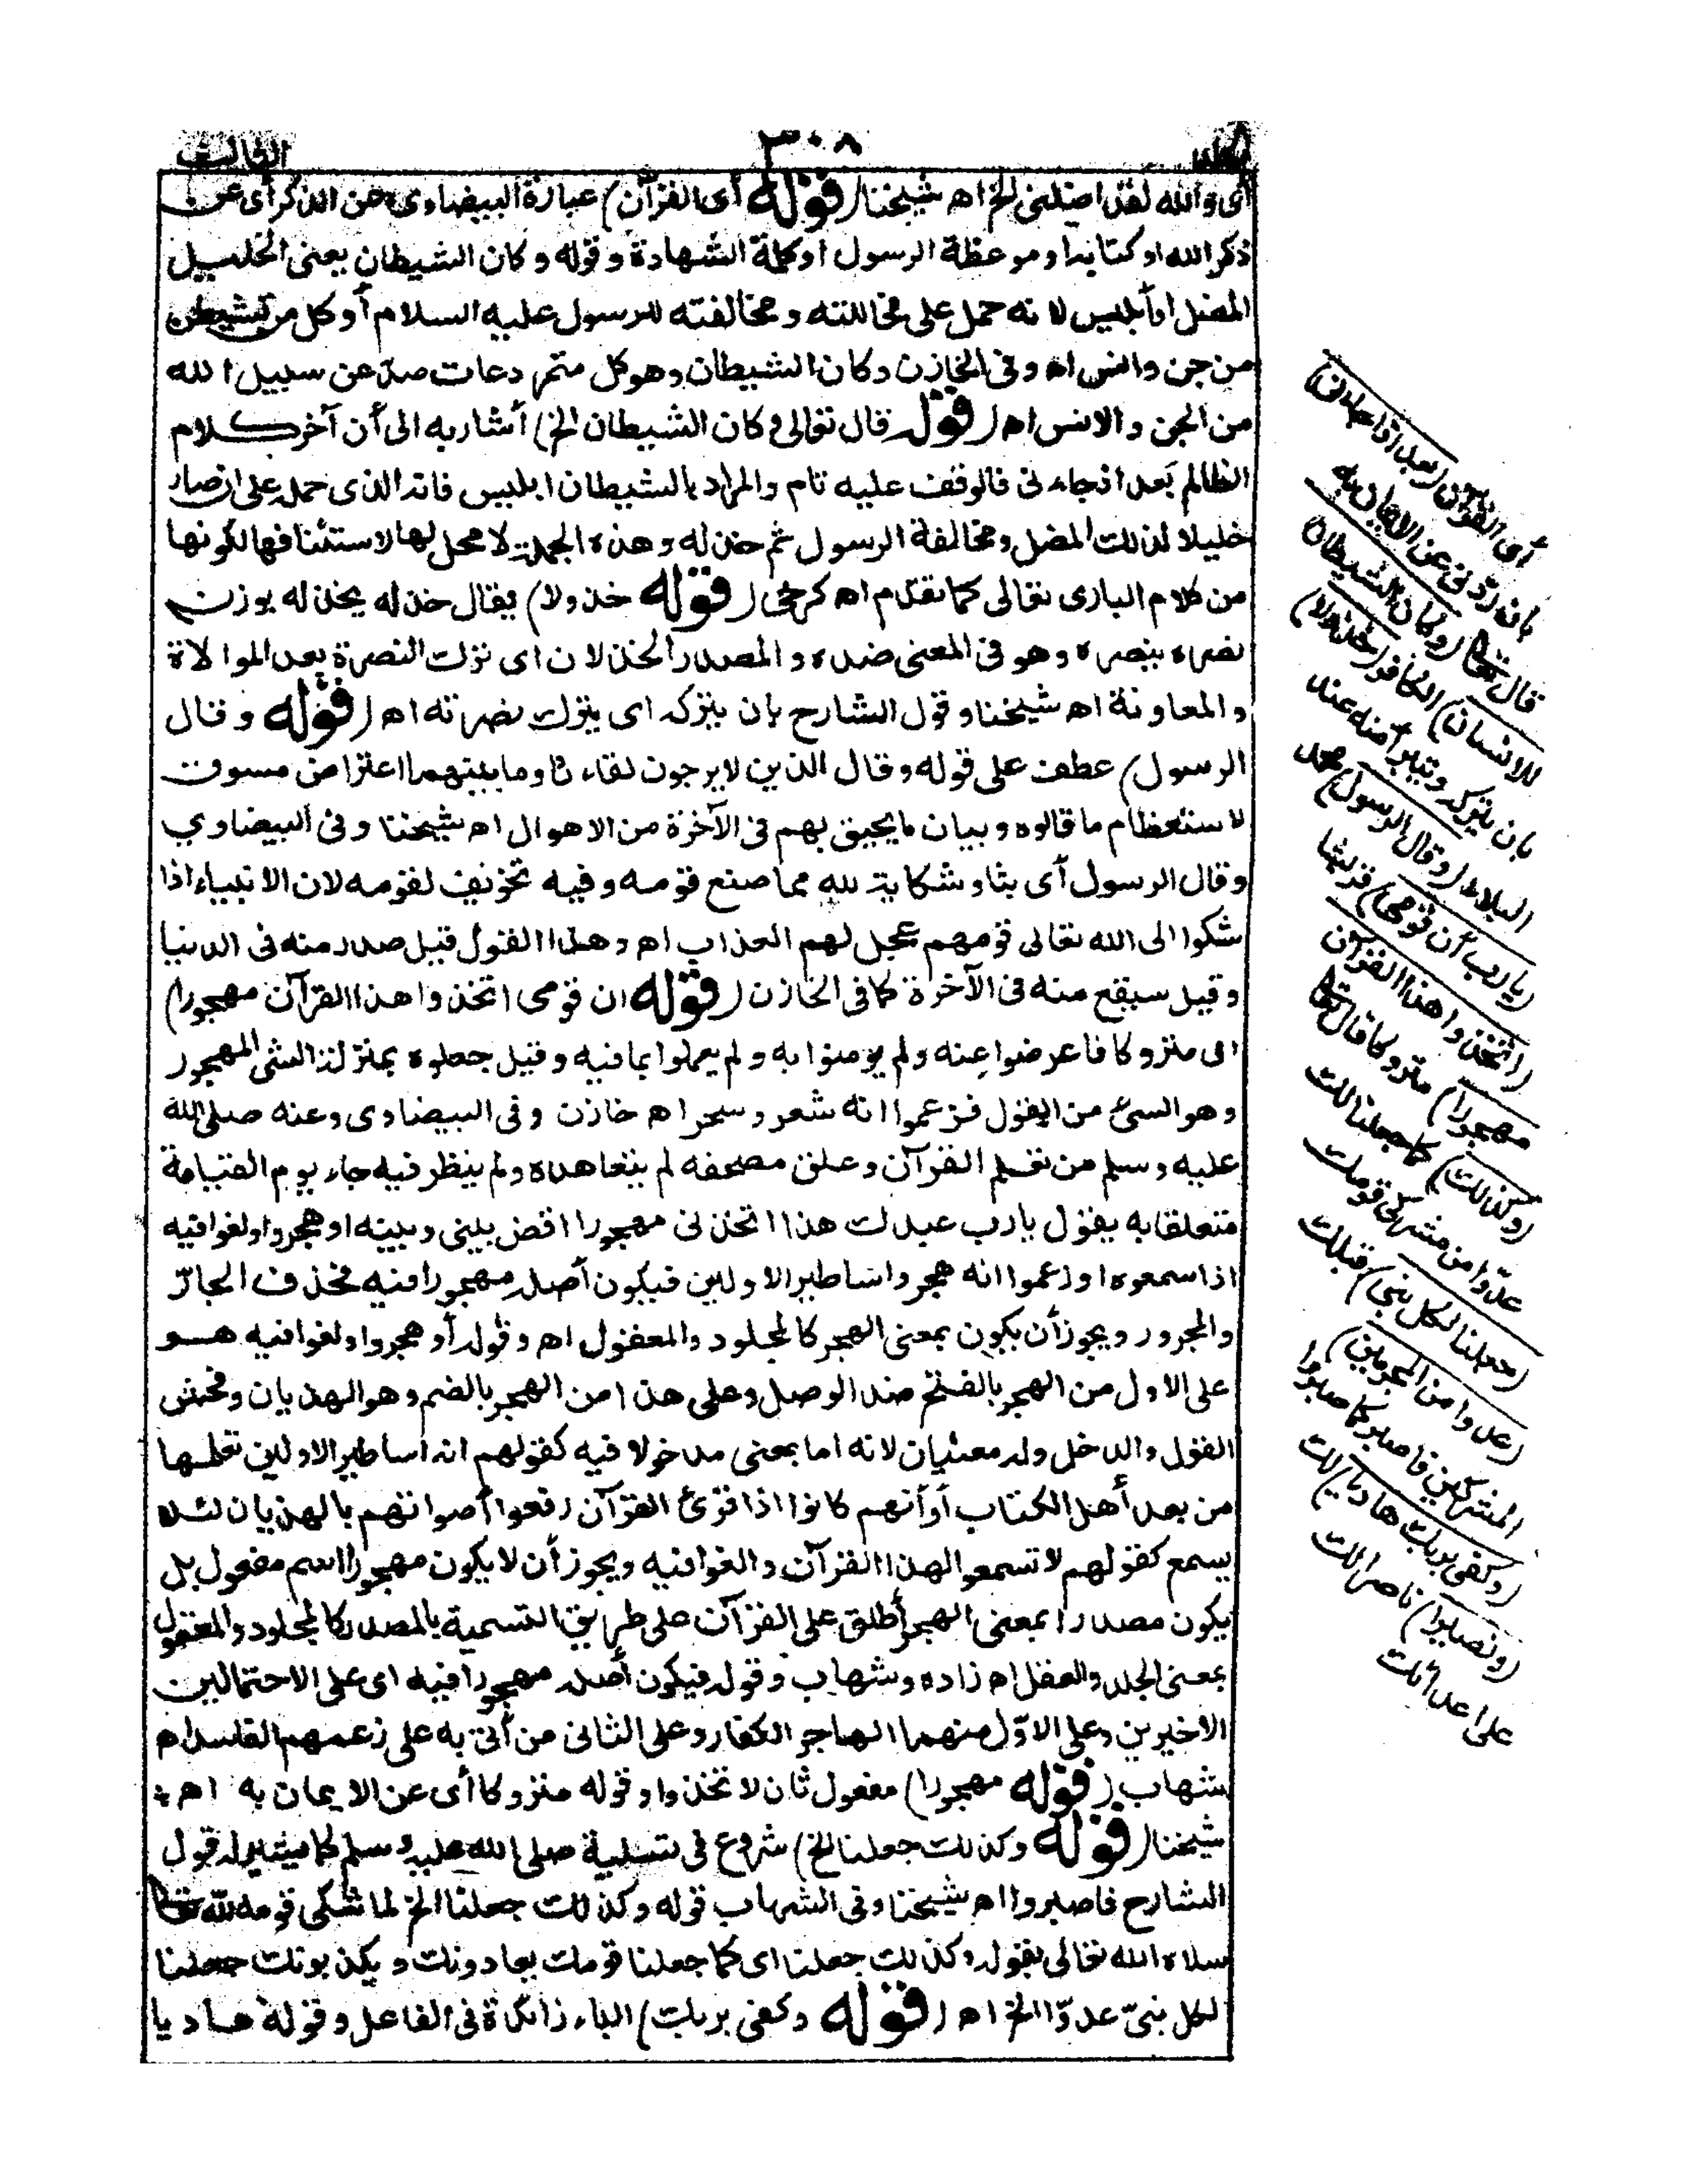 الجلد
٣٠٨
الثالث
أى والله لقد اضلنى الخ اه شيخنا (قوله أى القرآن) عبارة البيضاوى عن الذكر أى عن
ذكر الله او كتابه او موعظة الرسول او كلمة الشهادة وقوله وكان الشيطان يعنى الخليل
المضل او أبليس لانه حمل على مخاللته ومخالفته للرسول عليه السلام أو كل من تشيطن
من جن وانس اه وفى الخازن وكان الشيطان وهو كل متمرد عات صد عن سبيل الله
من الجن والانس اه (قوله قال تعالى وكان الشيطان الخ) أشار به الى أن آخر كلام
الظالم بعد اذ جاءنى فالوقف عليه تام والمراد بالشيطان ابليس فانه الذى حمله على ان صار
خليلا لذلك المضل ومخالفة الرسول ثم خذله وهذه الجملة لا محل لها لاستئنافها لكونها
من كلام البارى تعالى كما تقدم اه كرخى (قوله خذولا) يقال خذله يخذله بوزن
نصره ينصره وهو فى المعنى ضده والمصدر الخذلان اى ترك النصرة بعد الموالاة
والمعاونة اه شيخنا وقول الشارح بان يتركه اى يترك نصرته اه (قوله وقال
الرسول) عطف على قوله وقال الذين لا يرجون لقاءنا وما بينهما اعتراض مسوق
لاستعظام ما قالوه وبيان ما يحيق بهم فى الآخرة من الاهوال اه شيخنا وفى البيضاوي
وقال الرسول أى بثا وشكاية لله مما صنع قومه وفيه تخويف لقومه لان الانبياء اذا
شكوا الى الله تعالى قومهم عجل لهم العذاب اه وهذا القول قيل صدر منه فى الدنيا
وقيل سيقع منه فى الآخرة كما فى الخازن (قوله ان قومى اتخذوا هذا القرآن مهجورا)
اى متروكا فاعرضوا عنه ولم يؤمنوا به ولم يعملوا بما فيه وقيل جعلوه بمنزلة الشئ المهجور
وهو السئ من القول فزعموا انه شعر وسحر اه خازن وفى البيضاوى وعنه صلى الله
عليه وسلم من تعلم القرآن وعلق مصحفه لم يتعاهده ولم ينظر فيه جاء يوم القيامة
متعلقا به يقول يا رب عبدك هذا اتخذنى مهجورا اقض بينى وبينه او هجروا ولغوا فيه
اذا سمعوه او زعموا انه هجر واساطير الاولين فيكون أصله مهجورا فيه فحذف الجارّ
والمجرور ويجوز أن يكون بمعنى الهجر كالمجلود والمعقول اه وقوله أو هجروا ولغوا فيه هو
على الاول من الهجر بالفتح ضد الوصل وعلى هذا من الهجر بالضم وهو الهذيان وفحش
القول والدخل وله معنيان لانه اما بمعنى مدخولا فيه كقولهم انه أساطير الاولين تعلمها
من بعد أهل الكتاب أو أنهم كانوا اذا قرئ القرآن رفعوا أصواتهم بالهذيان لئلا
يسمع كقولهم لا تسمعوا لهذا القرآن والغوا فيه ويجوز أن لا يكون مهجورا اسم مفعول بل
يكون مصدرا بمعنى الهجر أطلق على القرآن على طريق التسمية بالمصدر كالمجلود والمعقول
بمعنى الجلد والعقل اه زاده وشهاب وقوله فيكون أصله مهجورا فيه اى على الاحتمالين
الاخيرين وعلى الاوّل منهما الهاجر الكفار وعلى الثانى من أتى به على زعمهم الفاسد اه
شهاب (قوله مهجورا) مفعول ثان لاتخذوا وقوله متروكا أى عن الايمان به اه
شيخنا (قوله وكذلك جعلنا الخ) شروع فى تسلية صلى الله عليه وسلم كما يشير له قول
الشارح فاصبروا اه شيخنا وفى الشهاب قوله وكذلك جعلنا الخ لما شكى قومه لله تعالى
سلاه الله تعالى بقوله وكذلك جعلنا اى كما جعلنا قومك يعادونك ويكذبونك جعلنا
لكل نبىّ عدوّا الخ اه (قوله وكفى بربك) الباء زائدة فى الفاعل وقوله هاديا
أى القرآن (بعد اذ جاءنى)
بان ردّنى عن الايمان به
قال تعالى (وكان الشيطان
للانسان) الكافر (خذولا)
بان يتركه ويتبرأ منه عند
البلاء (وقال الرسول) محمد
(يا رب أن قومى) قريشا
(اتخذوا هذا القرآن
مهجورا) متروكا قال تعالى
(وكذلك) كما جعلنا لك
عدوّا من مشركى قومك
(جعلنا لكل نبى) قبلك
(عدوا من المجرمين)
المشركين فاصبر كما صبروا
(وكفى بربك هاديا) لك
(ونصيرا) ناصرا لك
على اعدائك